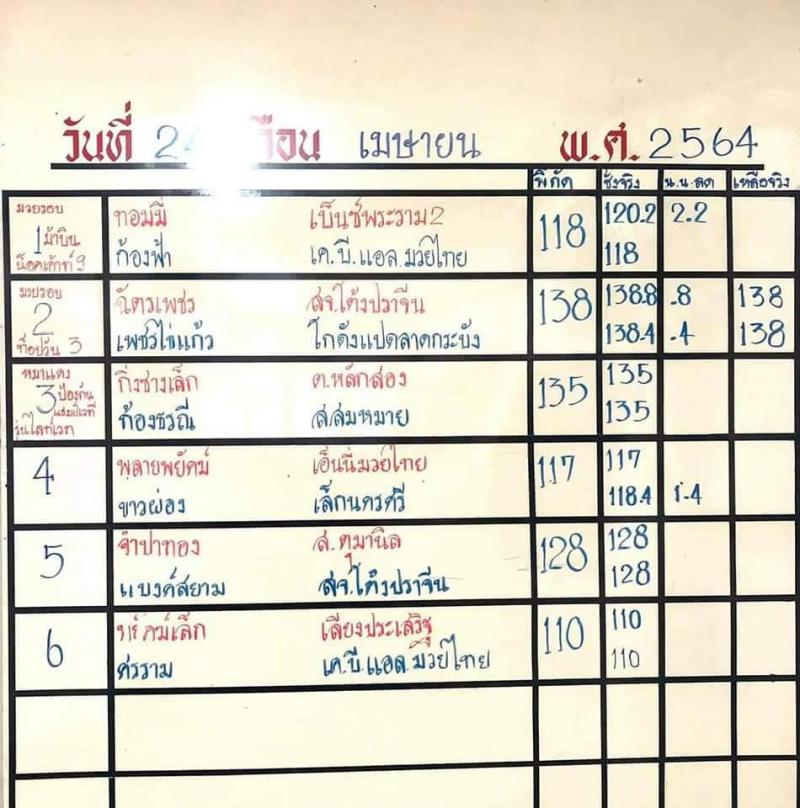 วันที่ 2 เดือน เมษายน พ.ศ. 2564
พิกัด ชั่งจริง น.น.ลด เหลือจริง
มวยรอบ ทอมมี่ เบ็นซ์พระราม2 118 120.2 2.2
1 ม้าบิน
น็อคเอ้าท์ 9 ก้องฟ้า เค.บี.แอล.มวยไทย 118
มวยรอบ ฉัตรเพชร สจ.โต้งปราจีน 138 138.8 .8 138
2
ท็อปวัน 3 เพชรไข่แก้ว โกดังแปดลาดกระบัง 138.4 .4 138
หมาแดง กิ่งซางเล็ก ต.หลักสอง 135 135
3 ป้องกัน
แชมป์เวที ก้องธรณี ส.สมหมาย 135
รุ่นไลท์เวท
4 พลายพยัคฆ์ เอ็นนี่มวยไทย 117 117
ขาวผ่อง เล็กนครศรี 118.4 1.4
5 จำปาทอง ส.ตุมานิล 128 128
แบงค์สยาม สจ.โต้งปราจีน 128
6 เลี่ยงประเสริฐ 110 110
ศรราม เค.บี.แอล.มวยไทย 110